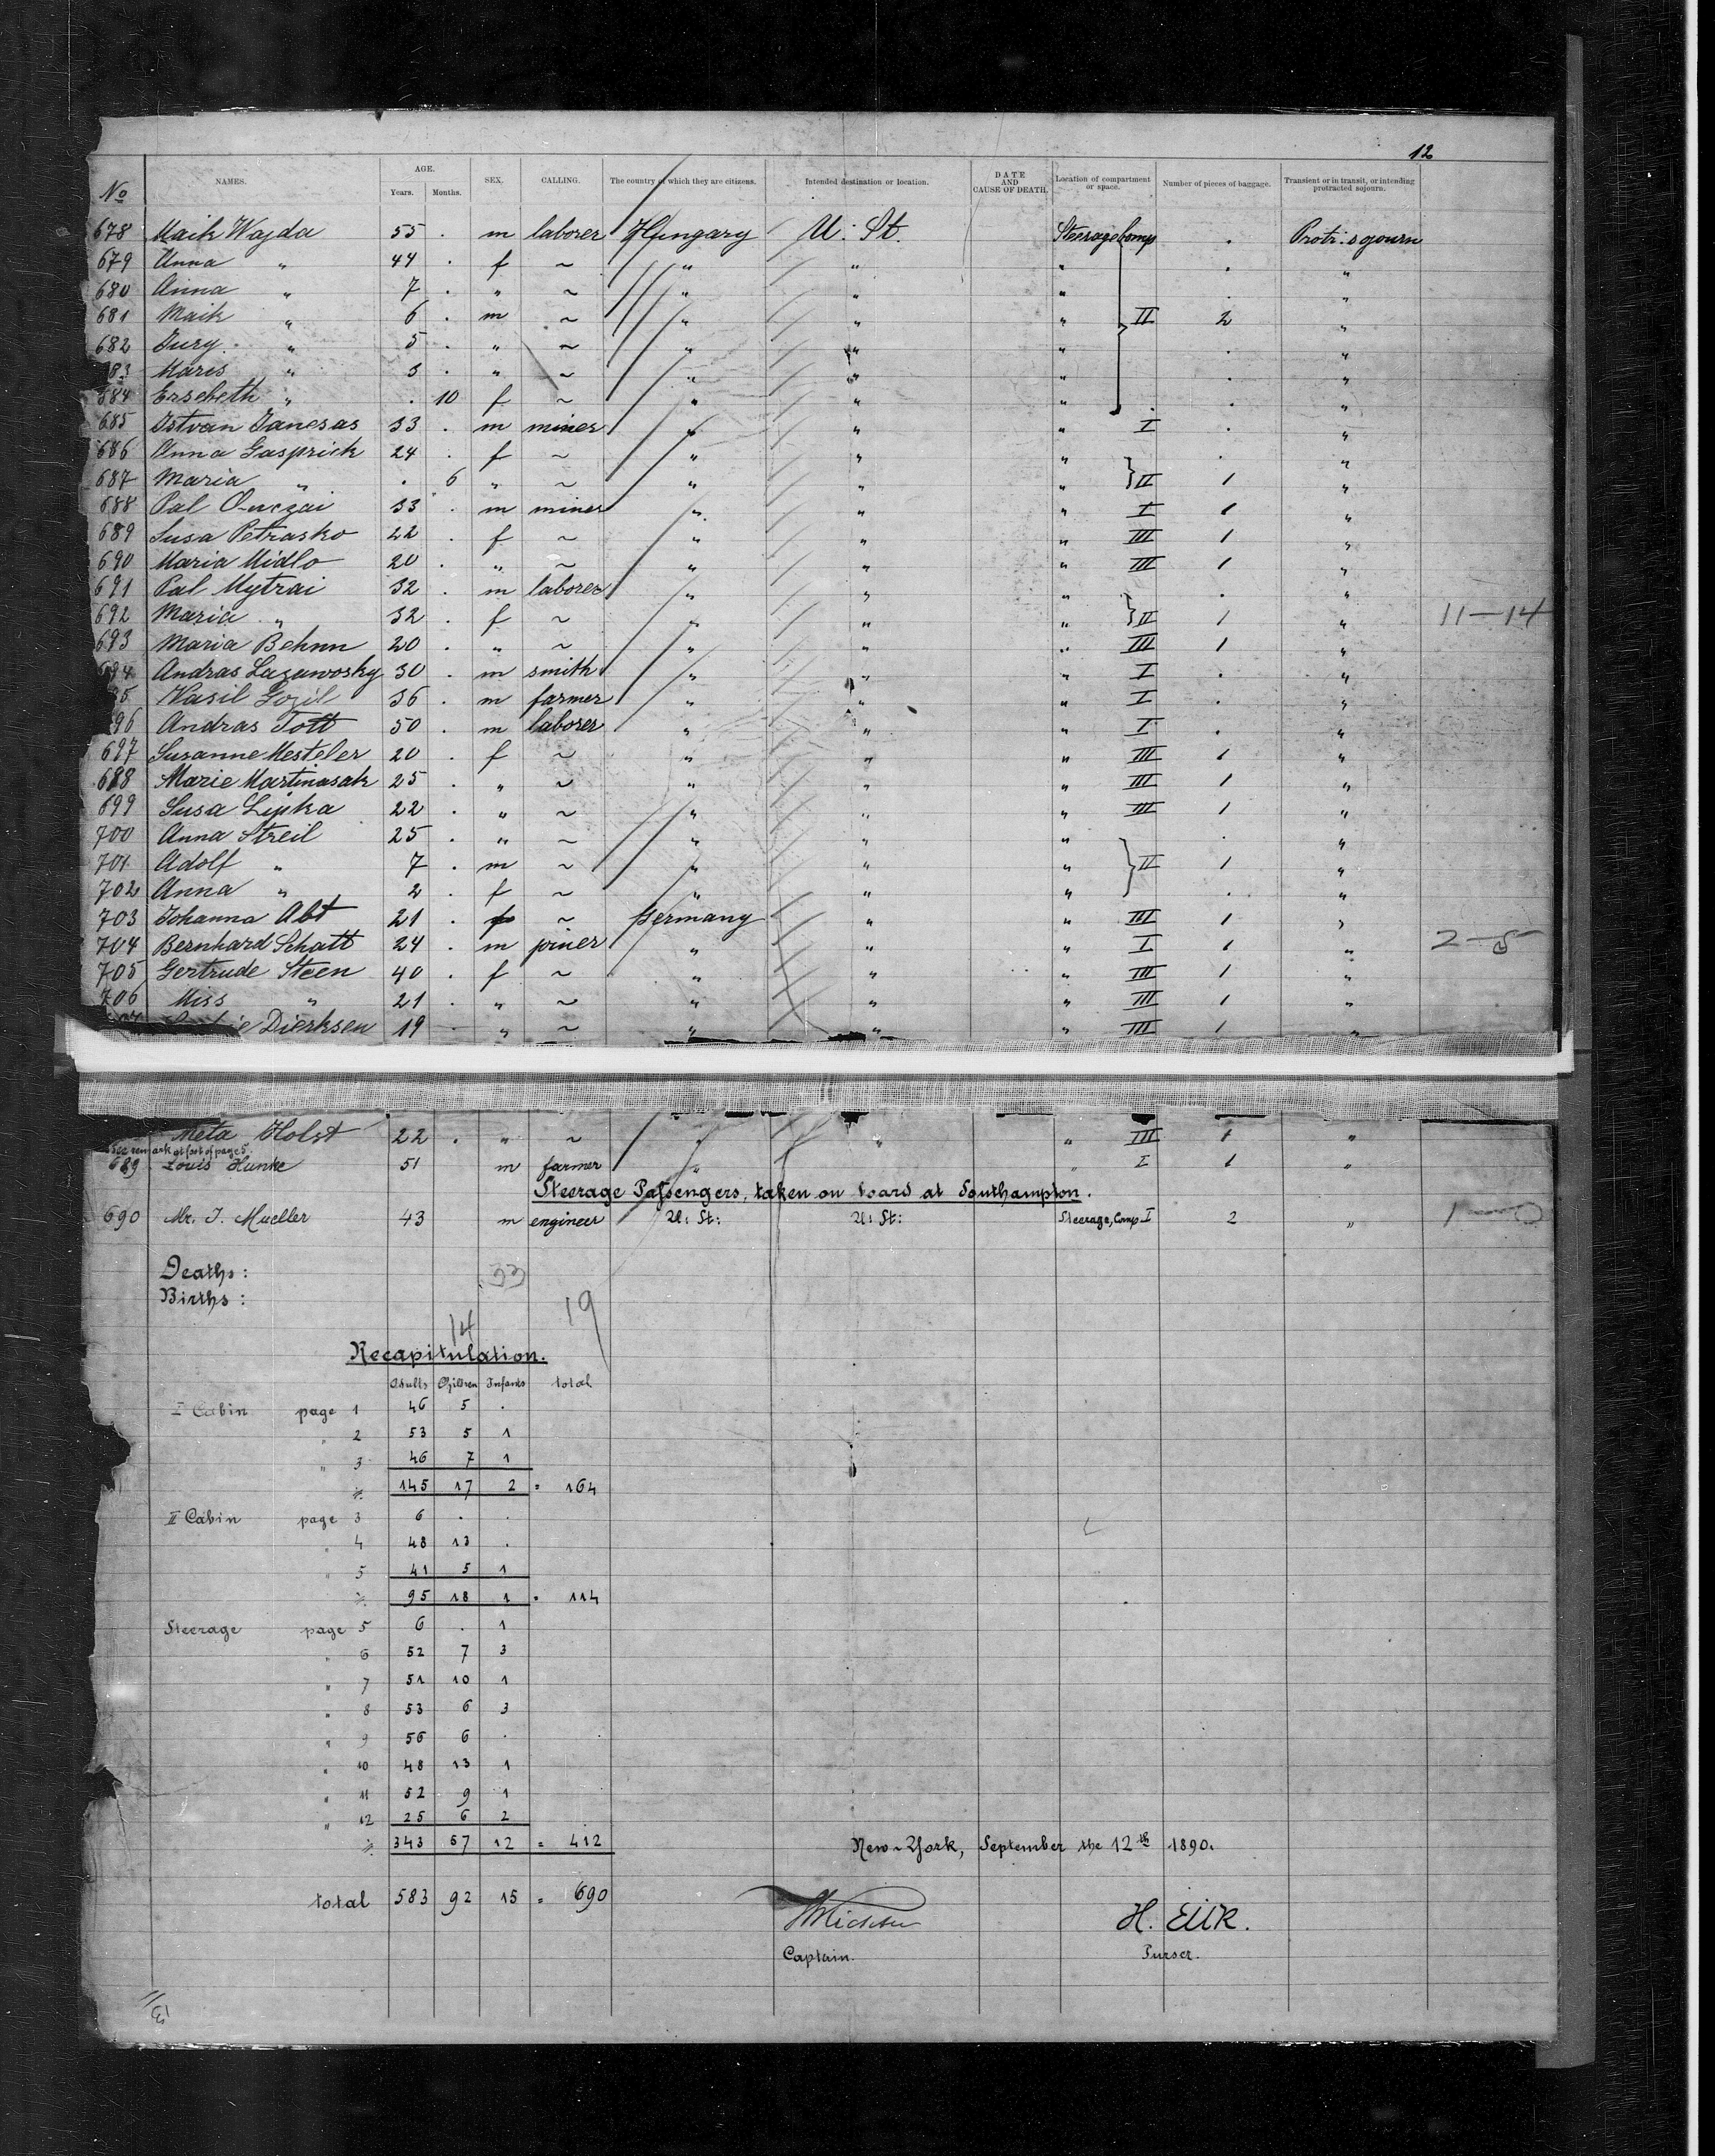 12
No NAMES. AGE. Years. Months. SEX. CALLING. The country of which they are citizens. Intended destination or location. DATE AND CAUSE OF DEATH. Location of compartment or space. Number of pieces of baggage. Transient or in transit, or intending protracted sojourn.
678 Maik Wajda 55 . m laborer Hungary U. St. Steerage Comp . Protr. sojourn
679 Anna " 44 . f ~ " " " . "
680 Anna " 7 . " ~ " " " . "
681 Maik " 6 . m ~ " " " II 2 "
682 Jury " 5 . " ~ " " " . "
683 Maris " 3 . " ~ " " " . "
684 Ersebeth " . 10 f ~ " " " . "
685 Istvan Janesas 33 . m miner " " " I . "
686 Anna Gasprick 24 . f ~ " " " . "
687 Maria " . 6 " ~ " " " II 1 "
688 Pal Onczai 33 . m miner " " " I 1 "
689 Susa Petrasko 22 . f ~ " " " III 1 "
690 Maria Midlo 20 . " ~ " " " III 1 "
691 Pal Mytrai 32 . m laborer " " " . "
692 Maria " 32 . f ~ " " " II 1 " 11-14
693 Maria Behnn 20 . " ~ " " " III 1 "
694 Andras Lazuwosky 30 . m smith " " " I . "
95 Wasil Gozil 36 . m farmer " " " I . "
696 Andras Tott 50 . m laborer " " " I . "
697 Susanne Mesteler 20 . f ~ " " " III 1 "
688 Marie Martinasak 25 . " ~ " " " III 1 "
699 Susa Lipka 22 . " ~ " " " III 1 "
700 Anna Streil 25 . " ~ " " " . "
701 Adolf " 7 . m ~ " " " II 1 "
702 Anna " 2 . f ~ " " " . "
703 Johanna Abt 21 . f ~ Germany " " III 1 "
704 Bernhard Schatt 24 . m joiner " " " I 1 " 2-5
705 Gertrude Steen 40 . f ~ " " " III 1 "
706 Miss " 21 . " ~ " " " III 1 "
Dierksen 19 " ~ " " " III 1 "
Meta Holst 22 . " ~ " " " III 1 "
See remark at foot of page 5.
689 Louis Hunke 51 m farmer " " I 1 "
Steerage Passengers, taken on board at Southampton.
690 Mr. J. Mueller 43 m engineer U: St: U: St: Steerage, Comp I 2 " 1-0
Deaths: 33
Births: 19
14
Recapitulation.
Adults Children Infants total
I Cabin page 1 46 5 .
" 2 53 5 1
" 3 46 7 1
145 17 2 = 164
II Cabin page 3 6 . .
" 4 48 13 .
" 5 41 5 1
95 18 1 = 114
Steerage page 5 6 . 1
" 6 52 7 3
" 7 51 10 1
" 8 53 6 3
" 9 56 6 .
" 10 48 13 1
" 11 52 9 1
" 12 25 6 2
343 57 12 = 412
New-York, September the 12th 1890.
total 583 92 15 = 690
H. Eilk.
Captain. Purser.